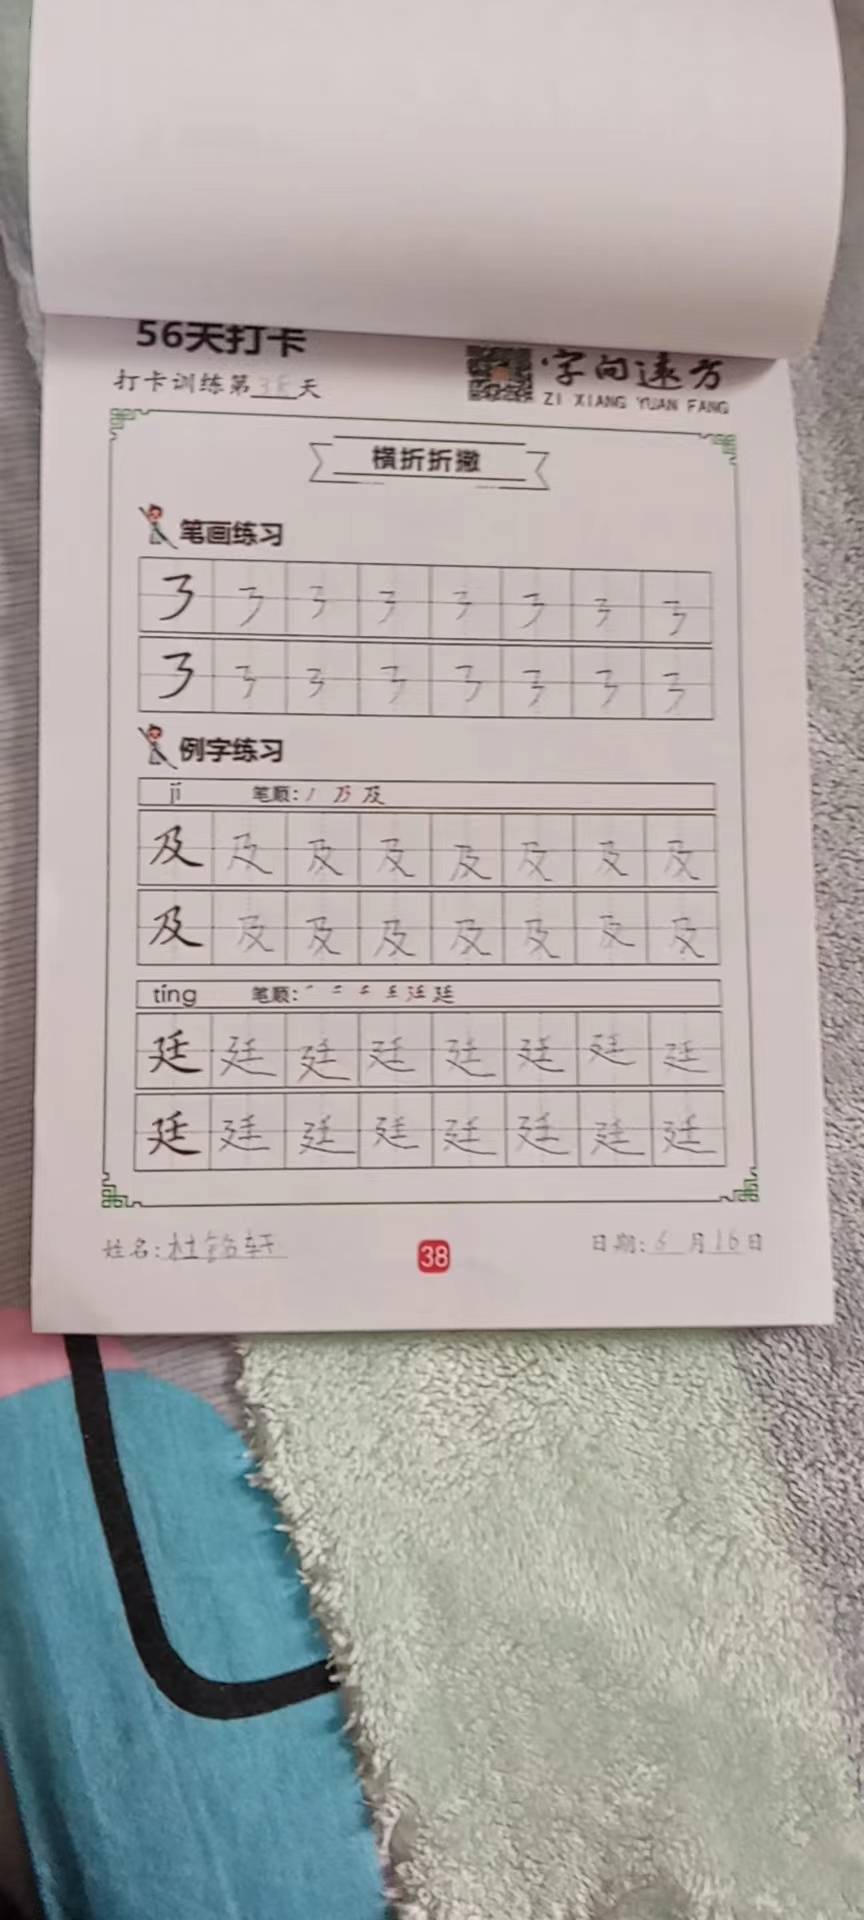 56天打卡
打卡训练第38天
字向远方
ZI XIANG YUAN FANG
横折折撇
笔画练习
㇋ ㇋ ㇋ ㇋ ㇋ ㇋ ㇋ ㇋
㇋ ㇋ ㇋ ㇋ ㇋ ㇋ ㇋ ㇋
例字练习
jí 笔顺: 丿 乃 及
及 及 及 及 及 及 及 及
及 及 及 及 及 及 及 及
tíng 笔顺:
廷 廷 廷 廷 廷 廷 廷 廷
廷 廷 廷 廷 廷 廷 廷 廷
姓名: 杜铭轩
38
日期: 6月16日